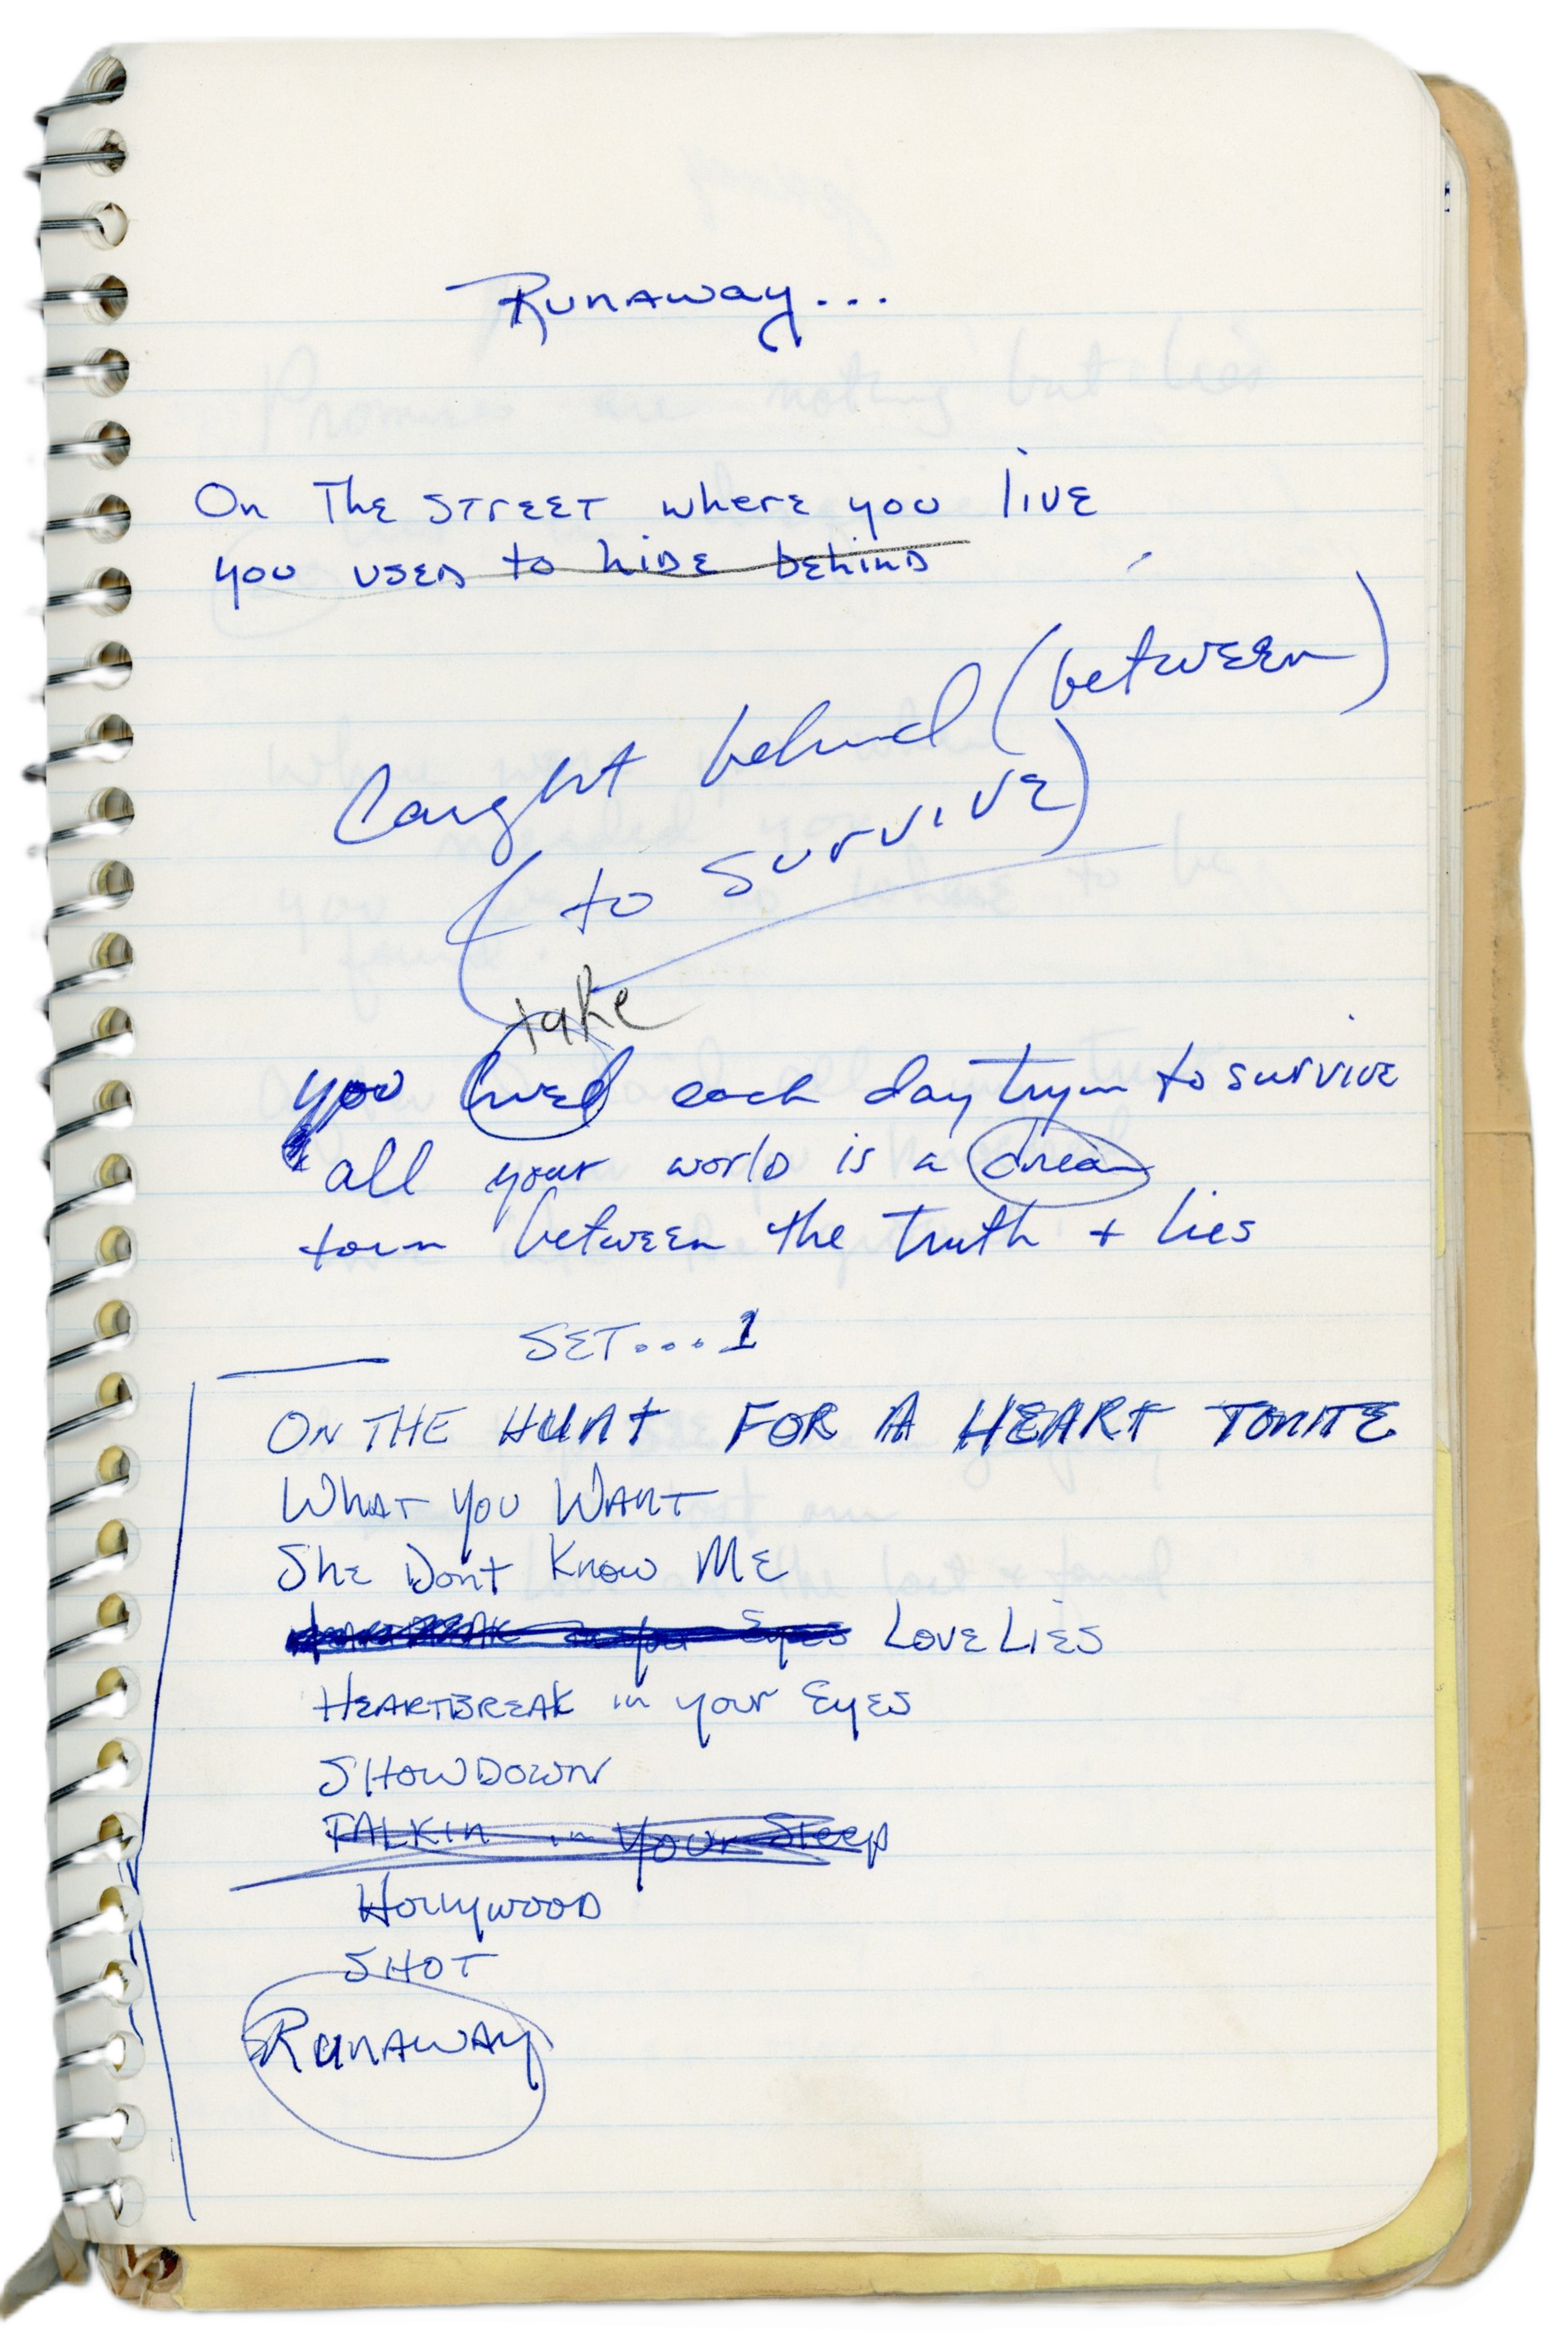 Runaway...
On The STrEET where you liVE
you USED to hiDE bEhinD
Caught behind (between)
(to survive)
take
you lived each day tryin to survive
all your world is a dream
torn between the truth + lies
SET...1
ON THE HUNT FOR A HEART TONITE
WhAT you WAnT
ShE Dont Know ME
HEARTBREAK in your Eyes LOVE LiES
HEARTBREAK in your EyES
SHOWDOWN
TALKin in Your Sleep
Hollywood
SHOT
RunAWAy